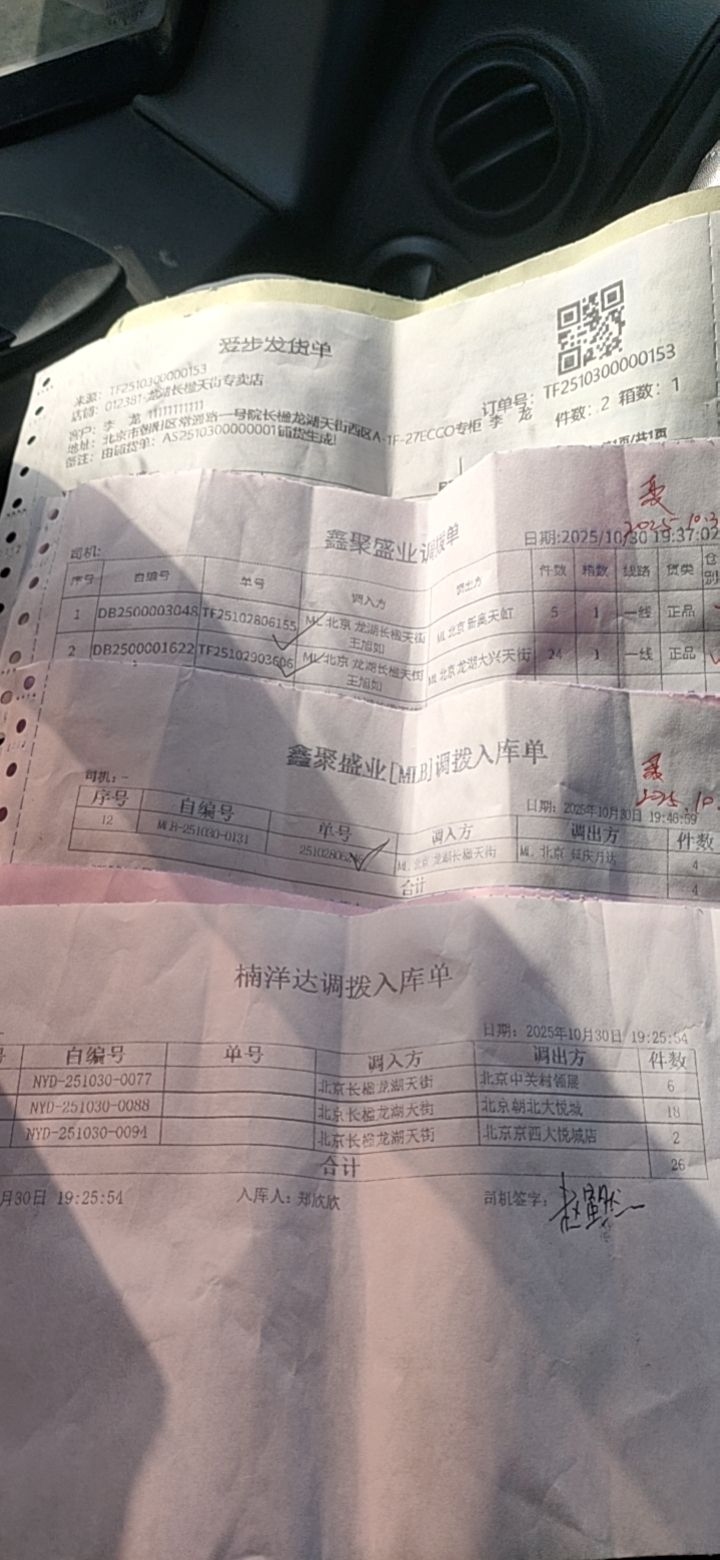 爱步发货单
来源：TF2510300000153
店铺：012381-龙湖长楹天街专卖店
客户：李 龙 11111111111
地址：北京市朝阳区常通路一号院长楹龙湖天街西区A-1F-27ECCO专柜 李 龙
备注：由铺货单：AS2510300000001铺货生成!
订单号：TF2510300000153
件数：2 箱数：1
鑫聚盛业调拨单
2025.10.3
司机:
日期:2025/10/30 19:37:02
序号 自编号 单号 调入方 调出方 件数 箱数 线路 货类 仓别
1 DB2500003048 TF25102806155 ML 北京 龙湖长楹天街 王旭如 ML 北京 新奥天虹 5 1 一线 正品
2 DB2500001622 TF25102903606 ML 北京 龙湖长楹天街 王旭如 ML 北京 龙湖大兴天街 24 1 一线 正品
鑫聚盛业[MLB]调拨入库单
2025.10
司机：-
日期：2025年10月30日 19:46:59
序号 自编号 单号 调入方 调出方 件数
12 MLB-251030-0131 ML 北京 龙湖长楹天街 ML 北京 4
合计 4
楠洋达调拨入库单
日期：2025年10月30日 19:25:54
号 自编号 单号 调入方 调出方 件数
NYD-251030-0077 北京长楹龙湖天街 北京中关村领展 6
NYD-251030-0088 北京长楹龙湖天街 北京朝北大悦城 18
NYD-251030-0094 北京长楹龙湖天街 北京京西大悦城店 2
合计 26
月30日 19:25:54 入库人：郑欣欣 司机签字：